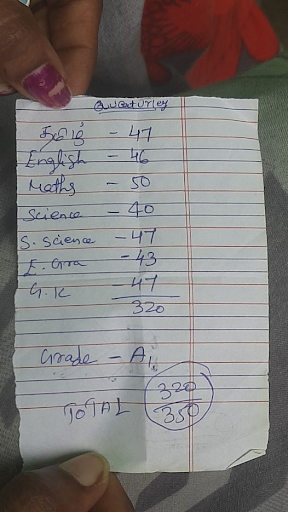 Quarterley
தமிழ் - 47
English - 46
Maths - 50
Science - 40
S. Science - 47
E. Gra - 43
G.K - 47
320
Grade - A1
TOTAL 320
350